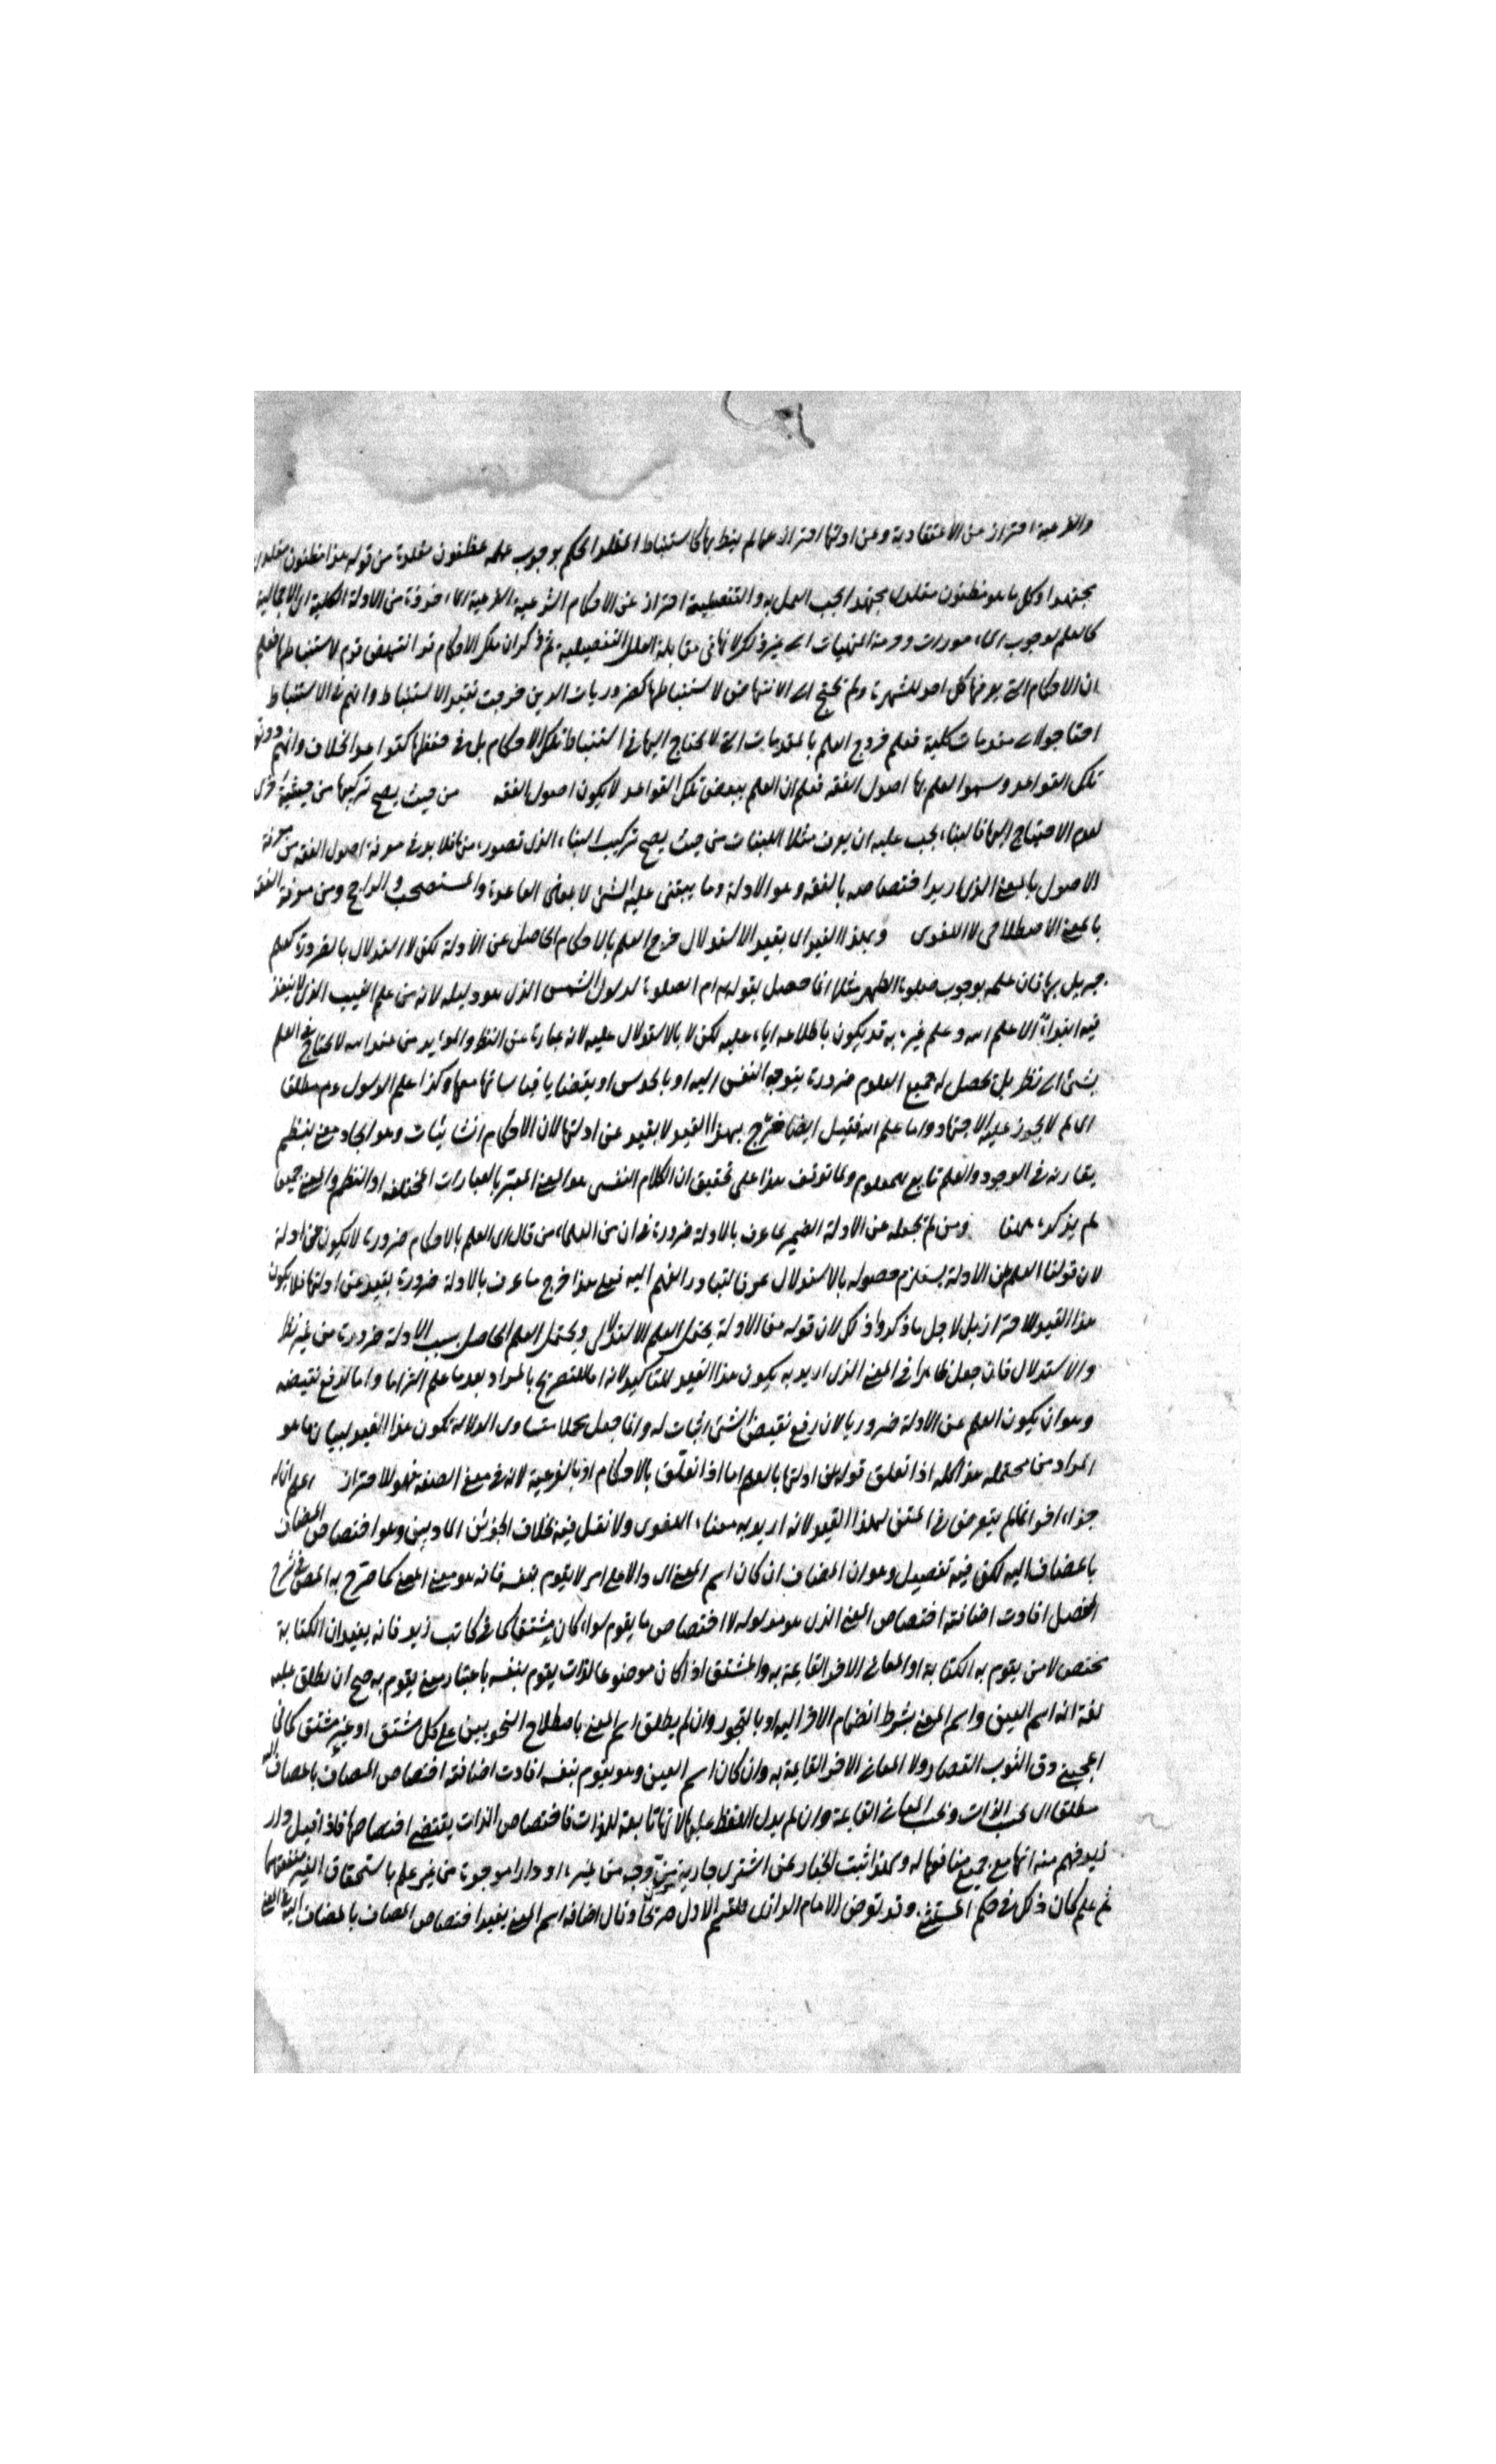 والفرعية احتراز من الاعتقادية وعن ادلتها احتراز عما لم ينط بها كاستنباط المقلد الحكم بوجوب عمله مظنون مقلده من قوله هذا مظنون مقلدى
مجتهدا وكل ما هو مظنون مقلدى مجتهدا يجب العمل به والتفصيلية احتراز عن الاحكام الشرعية الفرعية الماخوذة من الادلة الكلية اى الاجمالية
كالعلم بوجوب المامورات وحرمة المنهيات الى غير ذلك لانها فى مقابلة العلل التفصيلية ثم ذكر ان تلك الاحكام قد انتهض قوم لاستنباطها فعلم
ان الاحكام التى يعرفها كل احد للشهرة ولم تحتج الى الانتهاض لاستنباطها كضروريات الدين خرجت بقيد الاستنباط وانهم فى الاستنباط
احتاجوا الى مقدمات كلية فعلم خروج العلم بالمقدمات التى لا يحتاج اليها فى استنباط تلك الاحكام بل فى حفظها كقواعد الخلاف وانهم دونوا
تلك القواعد وسموا العلم بها اصول الفقه فعلم ان العلم ببعض تلك القواعد لا يكون اصول الفقه من حيث يصح تركيبها من حيثية اخرى
لعدم الاحتياج اليها فالبناء يجب عليه ان يعرف مثلا اللبنات من حيث يصح تركيب البناء الذى تصوره منها فلا بد فى معرفة اصول الفقه من معرفة
الاصول بالمعنى الذى اريد اختصاصه بالفقه وهو الادلة وما يبتنى عليه الشئ لا بمعنى القاعدة والمستصحب والراجح ومن معرفة الفقه
بالمعنى الاصطلاحى لا اللغوى وبهذا القيد اى بقيد الاستدلال خرج العلم بالاحكام الحاصل عن الادلة لكن لا استدلال بالضرورة كعلم
جبريل بها فان علمه بوجوب صلوة الظهر مثلا انما حصل بقوله اقم الصلوة لدلوك الشمس الذى هو دليله لانه من علم الغيب الذى لا ينفذ
فيه ابتداء الا علم الله وعلم غيره به قد يكون باطلاعه اياه عليه لكن لا بالاستدلال عليه لانه عبارة عن النظر والمؤيد من عند الله لا يحتاج فى العلم
بشئ الى نظر بل تحصل له جميع العلوم ضرورة بتوجه النفس اليه او بالحدس او بقضايا قياساتها معها وكذا علم الرسول ءم مطلقا
اى لم لا يجوز عليه الاجتهاد واما علم الله فقيل ايضا خرج بهذا القيد لا بقيد عن ادلتها لان الاحكام انشائيات وهو ايجاد معنى بنظم
يقارنه فى الوجود والعلم تابع للمعلوم ولما توقف هذا على تحقيق ان الكلام النفسى هو المعنى المعتبر بالعبارات المختلفة او النظم والمعنى جميعا
لم يذكره ههنا ومن لم يجعله عن الادلة الضميرى ما عرف بالادلة ضرورة فان من العلماء من قال ان العلم بالاحكام ضرورة لا يكون عن ادلة
لان قولنا العلم عن الادلة يستلزم حصوله بالاستدلال عرفا لتبادر الفهم اليه فعلى هذا خرج ما عرف بالادلة ضرورة بقيد عن ادلتها فلا يكون
هذا القيد للاحتراز بل لاجل ما ذكروا ذلك لان قوله من الادلة يحتمل العلم الاستدلالى ويحتمل العلم الحاصل بسبب الادلة ضرورة من غير نظر
والاستدلال فان جعل ظاهرا فى المعنى الذى اريد به يكون هذا القيد للتاكيد لانه اما للتصريح بالمراد بعد ما علم التزاما واما لدفع نقيضه
وهو ان يكون العلم عن الادلة ضروريا لان رفع نقيض الشئ اثبات له وان جعل مجملا متساوى الدلالة تكون هذا القيد لبيان ما هو
المراد من محتمله هذا كله اذا تعلق قوله عن ادلتها بالعلم اما اذا تعلق بالاحكام او بالفرعية لانه فى معنى الصفة فهو للاحتراز اعلم ان له
جزاء اخر انما لم يتعرض فى المتن لهذا القيد لانه اريد به معناه اللغوى ولا نقل فيه بخلاف الجزئين الماديين وهو اختصاص المضاف
بالمضاف اليه لكن فيه تفصيل وهو ان المضاف ان كان اسم المعنى الدال على امر لا يقوم بنفسه فانه هو معنى المعنى كما صرح به المص فى شرح
المفصل افادت اضافته اختصاص المعنى الذى هو مدلوله لا اختصاص ما يقوم سواء كان مشتقا كما فى كاتب زيد فانه يفيد ان الكتابة
تختص لا من يقوم به الكتابة او المعانى الاخر القائمة به والمشتق اذا كان موضوعا لذات يقوم بنفسه باعتبار معنى يقوم به صح ان يطلق عليه
لغة انه اسم العين واسم المعنى بشرط انضمام الاخر اليه او بالتجوز وان لم يطلق اسم المعنى باصطلاح النحويين على كل مشتق او غير مشتق كما فى
اعجبنى دق الثوب القصار ولا المعانى الاخر القائمة به وان كان اسم العين وهو يقوم بنفسه افادت اضافته اختصاص المضاف بالمضاف اليه
مطلقا اى بحسب الذات وبحسب المعانى القائمة وان لم يدل اللفظ عليها لانها تابعة للذات فاختصاص الذات يقتضى اختصاصها فاذا قيل دار
زيد فهم منه انها مع جميع منافعها له ولهذا ثبت الخيار لمن اشترى جارية مزوجة من غيره او دارا موجرة من غير علم باستحقاق الغير منفعتها
ثم علم كان ذلك فى حكم المستثنى وقد تعرض الامام الرازى للقسم الاول صريحا وقال اضافة اسم المعنى يفيد اختصاص المضاف بالمضاف اليه فى المعنى